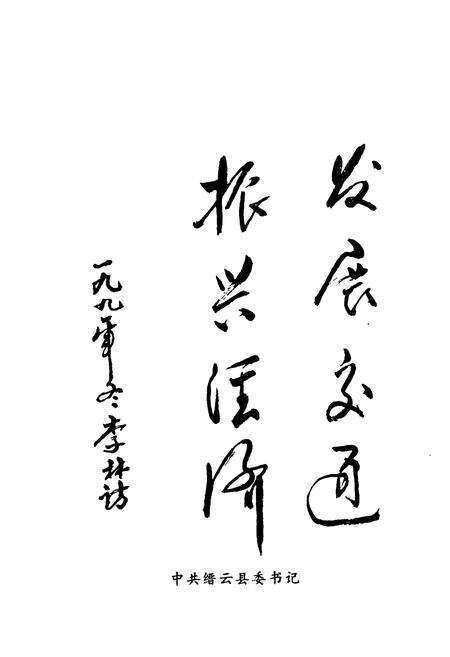 发展交通
振兴经济
一九九〇年冬 李林访
中共缙云县委书记